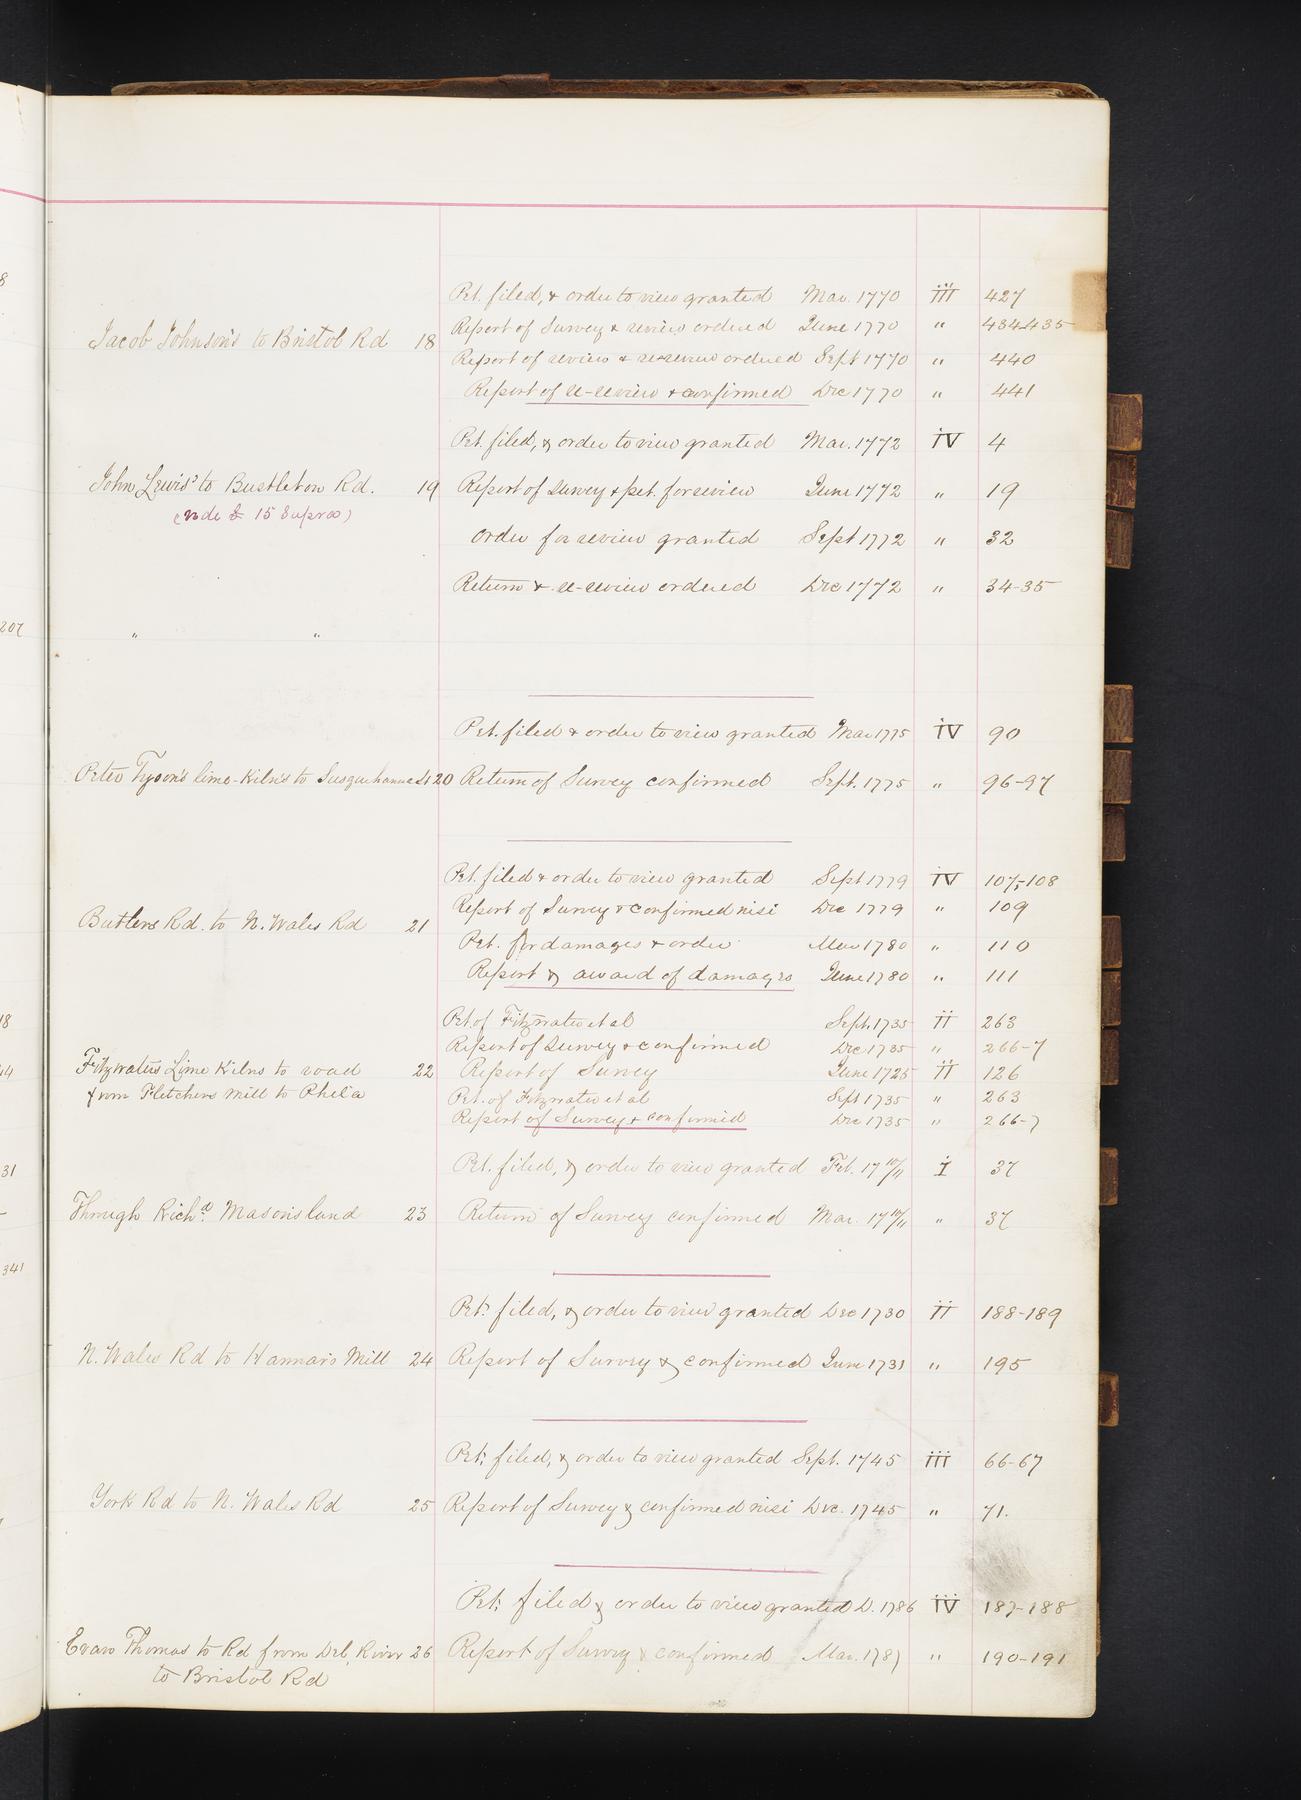 Pet. filed, & order to view granted Mar. 1770 III 427
Report of Survey & review ordered June 1770 " 434-435
Jacob Johnson's to Bristol Rd 18
Report of review & re-review ordered Sept 1770 " 440
Report of re-review & confirmed Dec 1770 " 441
Pet. filed, & order to view granted Mar. 1772 IV 4
John Lewis' to Bustleton Rd. 19 Report of Survey & pet. for review June 1772 " 19
15 Supra)
order for review granted Sept 1772 " 32
Return & re-review ordered Dec 1772 " 34-35
" "
Pet. filed & order to view granted Mar 1775 IV 90
Peter Tyson's lime-Kilns to Susquehanna St 20 Return of Survey confirmed Sept. 1775 " 96-97
Pet. filed & order to view granted Sept 1779 IV 107-108
Report of Survey & confirmed nisi Dec 1779 " 109
Butlers Rd. to N. Wales Rd 21
Pet. for damages & order Mar 1780 " 110
Report & award of damages June 1780 " 111
Pet of Fitzwater et al Sept. 1735 II 263
Report of Survey & confirmed Dec 1735 " 266-7
Fitzwaters Lime Kilns to road 22 Report of Survey June 1725 II 126
from Fletchers Mill to Phil'a Pet. of Fitzwater et al Sept 1735 " 263
Report of Survey & confirmed Dec 1735 " 266-7
Pet. filed, & order to view granted Feb. 17 10/11 I 37
Through Rich.d Mason's land 23 Return of Survey confirmed Mar. 17 10/11 " 37
Pet. filed, & order to view granted Dec 1730 II 188-189
N. Wales Rd to Hannai's Mill 24 Report of Survey & confirmed June 1731 " 195
Pet. filed, & order to view granted Sept. 1745 III 66-67
York Rd to N. Wales Rd 25 Report of Survey & confirmed nisi Dec. 1745 " 71.
Pet. filed & order to view granted D. 1786 IV 187-188
Evan Thomas to Rd from Del. River 26 Report of Survey & confirmed Mar. 1787 " 190-191
to Bristol Rd